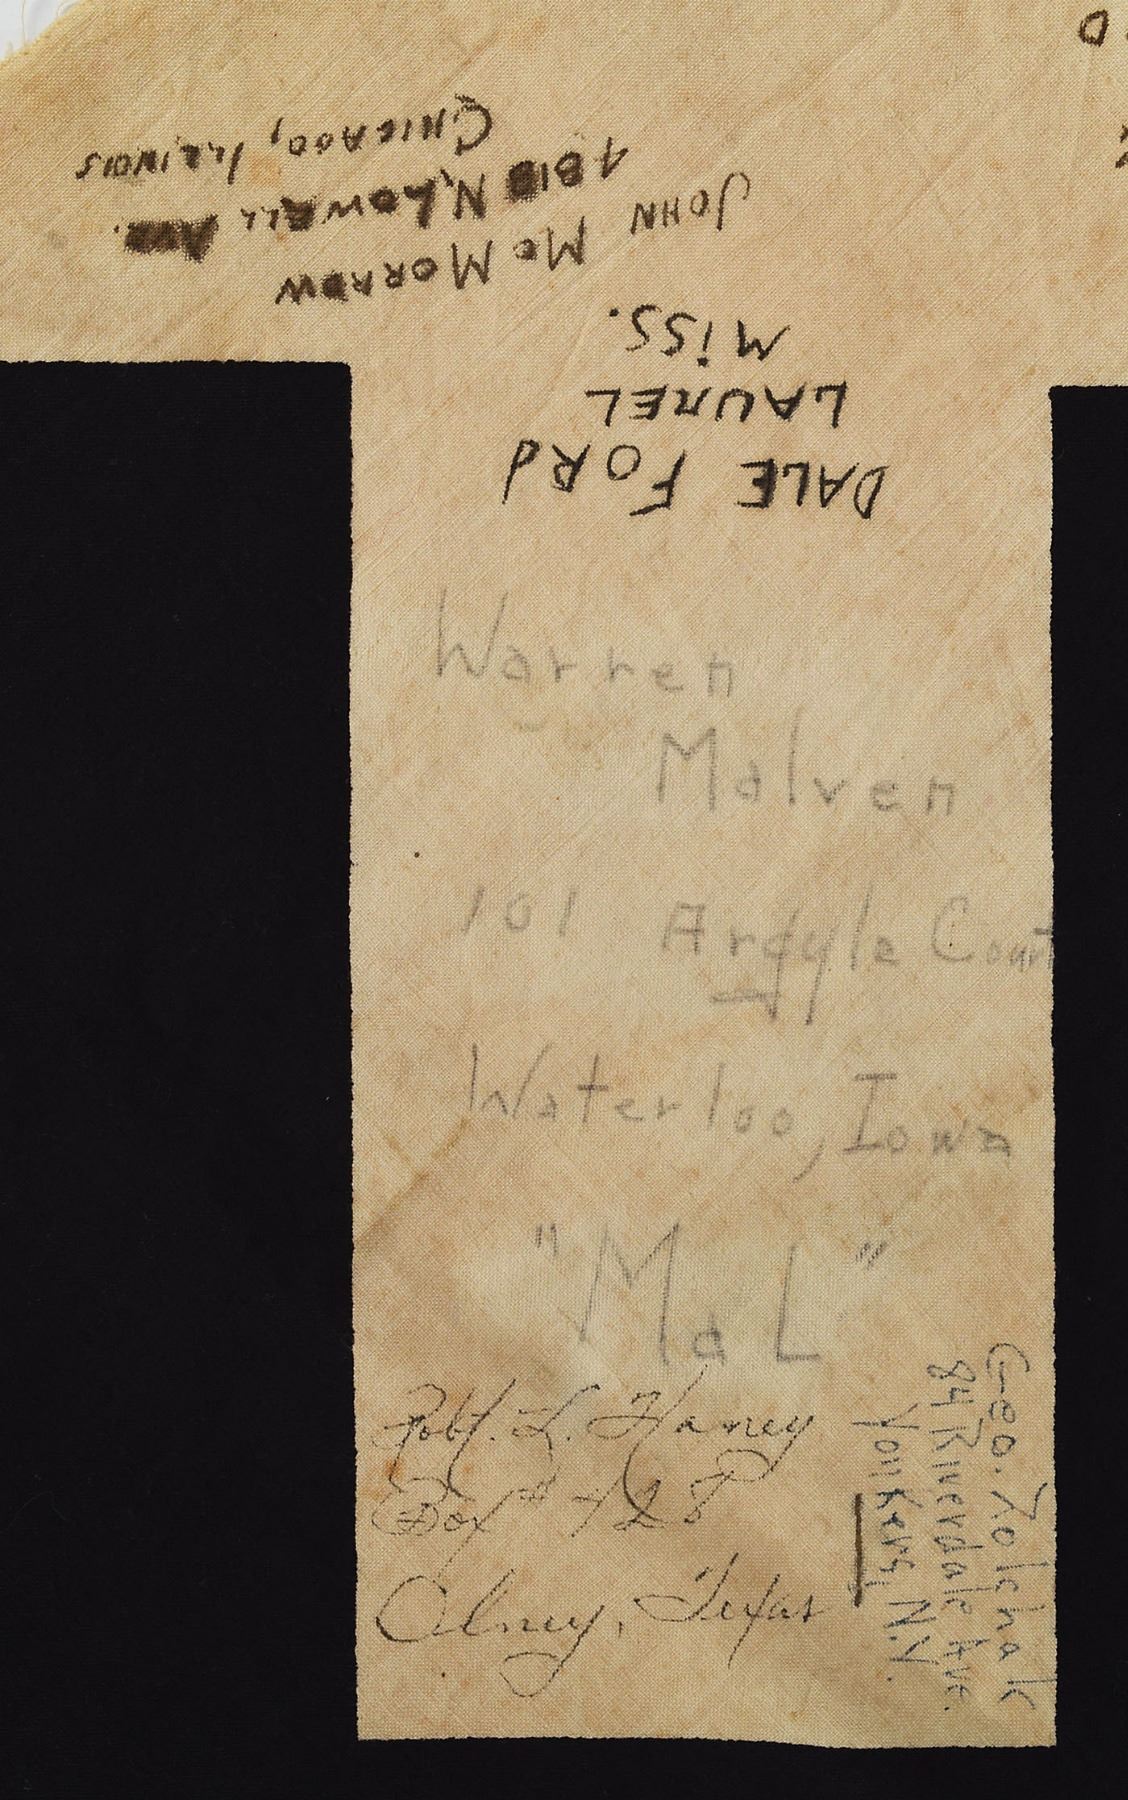 JOHN McMORROW
4818 N. LOWELL AVE.
CHICAGO, ILLINOIS
DALE FORd
LAUREL
MiSS.
Warren
Malven
101 Argyle Court
Waterloo, Iowa
"MaL"
Robt. L. Haney
Box # 428
Olney, Texas
Geo. Zolchak
84 Riverdale Ave.
Yonkers, N.Y.